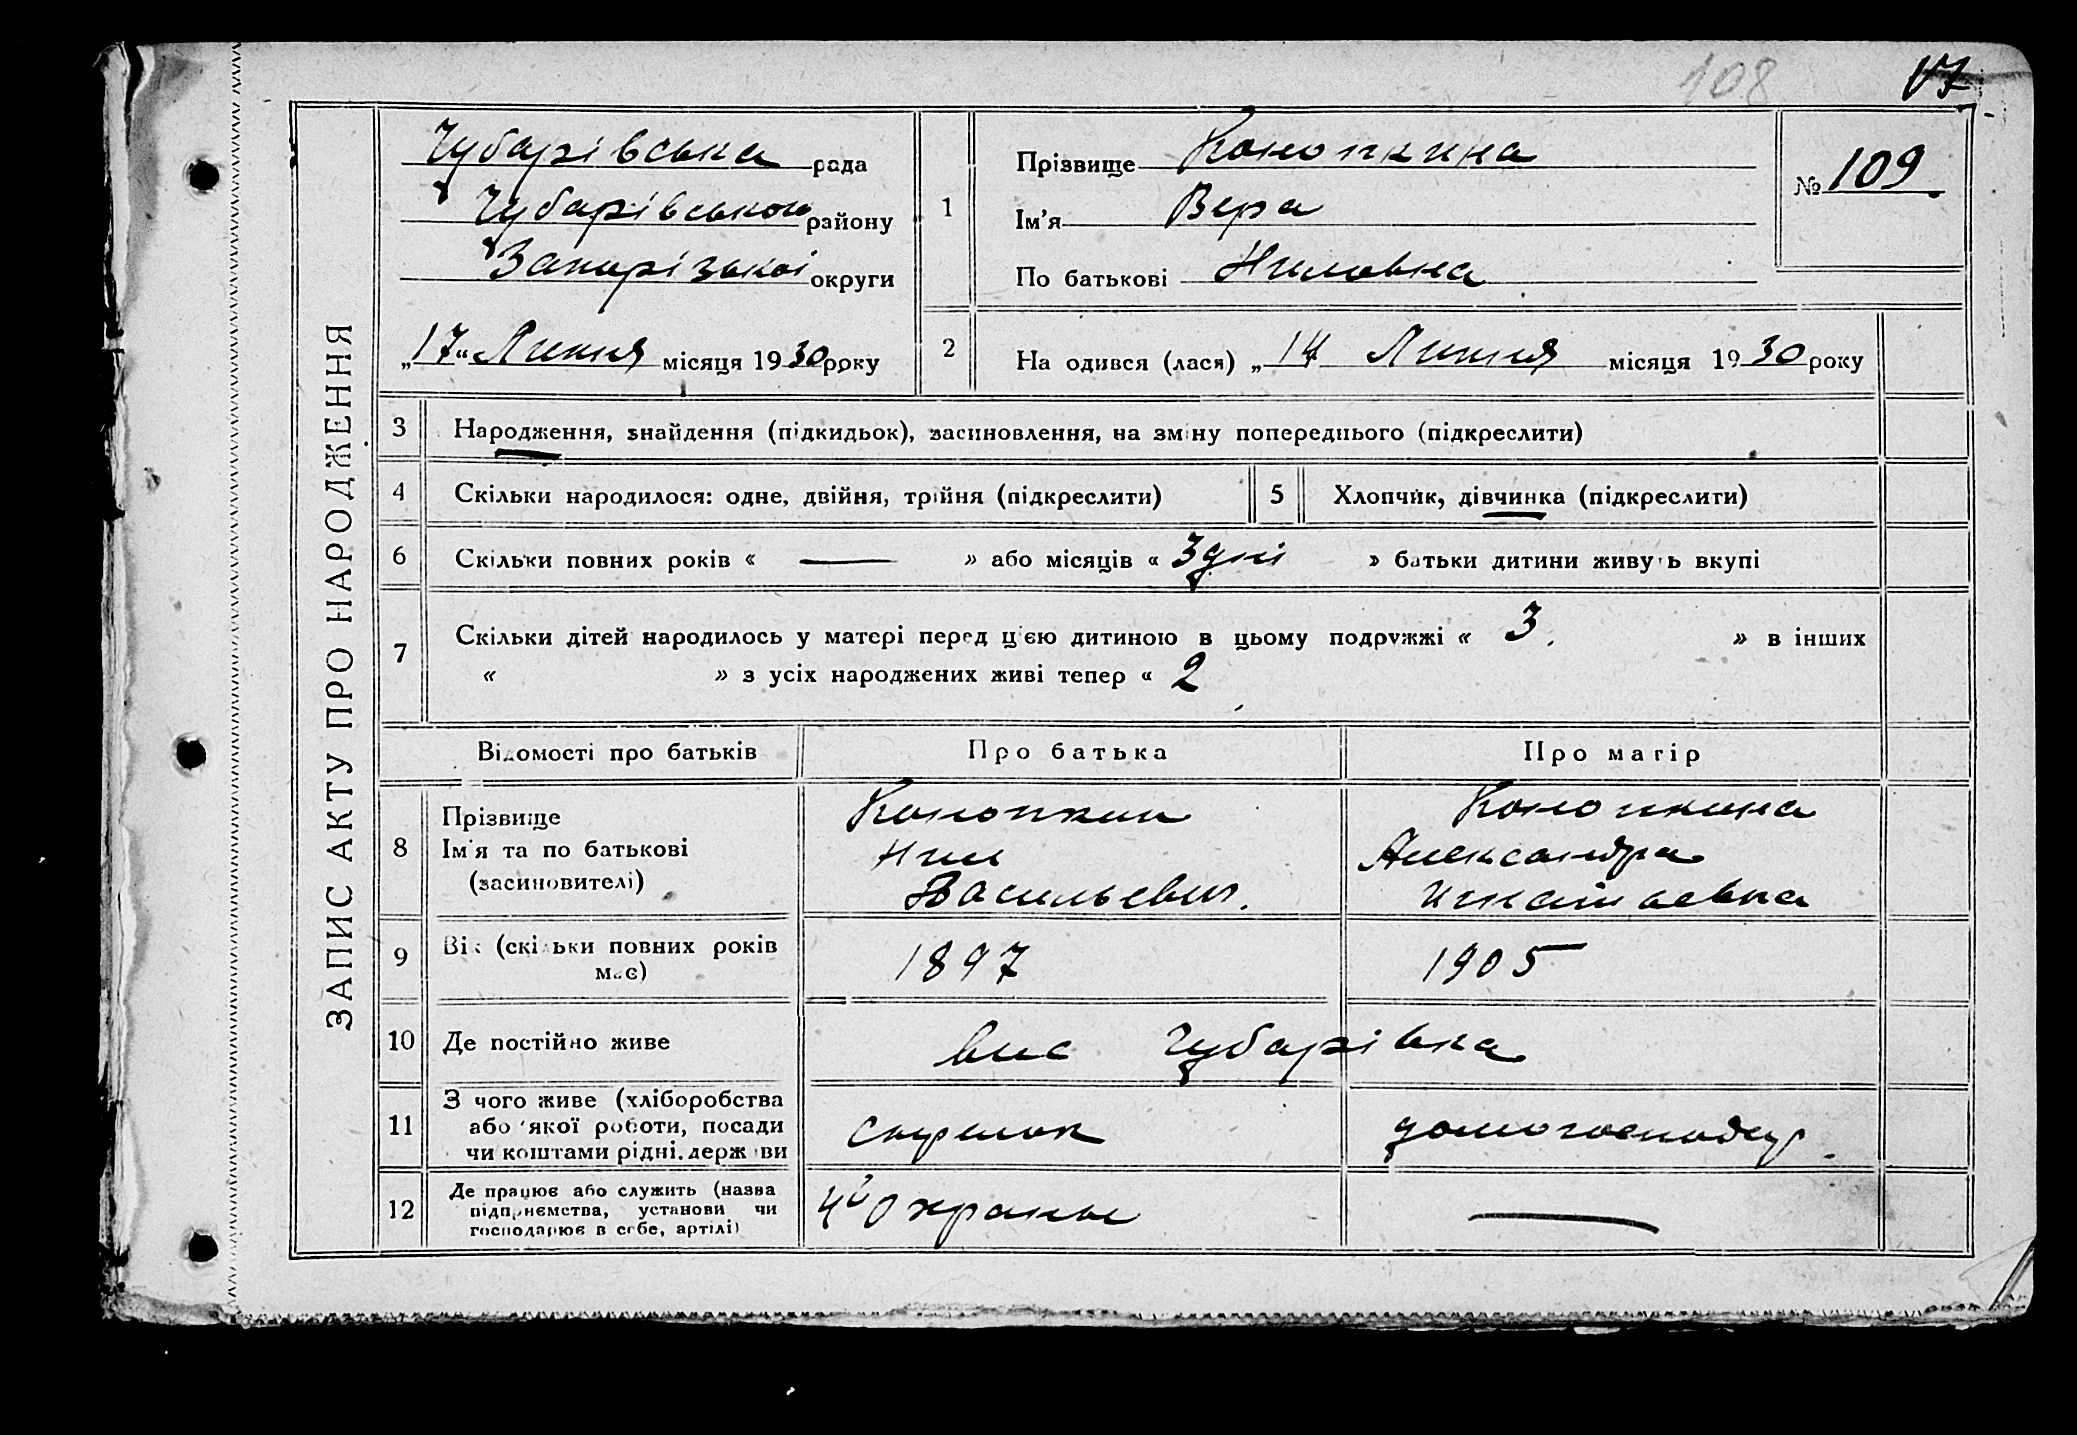 108
17
ЗАПИС АКТУ ПРО НАРОДЖЕННЯ
Чубарівська рада
Чубарівського району
Запорізької округи
„17“ Липня місяця 1930 року
1
Прізвище Конопкина
Ім’я Вера
По батькові Ниловна
№ 109
2
На одився (лася) „14 Липня місяця 1930 року
3 Народження, знайдення (підкидьок), засиновлення, на зміну попереднього (підкреслити)
4 Скільки народилося: одне, двійня, трійня (підкреслити)
5 Хлопчик, дівчинка (підкреслити)
6 Скільки повних років « — » або місяців « 3 дні » батьки дитини живуть вкупі
7 Скільки дітей народилось у матері перед цією дитиною в цьому подружжі « 3. » в інших
« » з усіх народжених живі тепер « 2
Відомості про батьків Про батька Про матір
8 Прізвище
Ім’я та по батькові
(засиновителі)
Конопкин
Нил
Васильевич.
Конопкина
Александра
Игнатьевна
9 Вік (скільки повних років
має)
1897
1905
10 Де постійно живе
вис Чубарівка
11 З чого живе (хліборобства
або якої роботи, посади
чи коштами рідні, держ ви
стрелок
домогосподар.
12 Де працює або служить (назва
підприємства, установи чи
господарює в себе, артілі)
Охраны
—